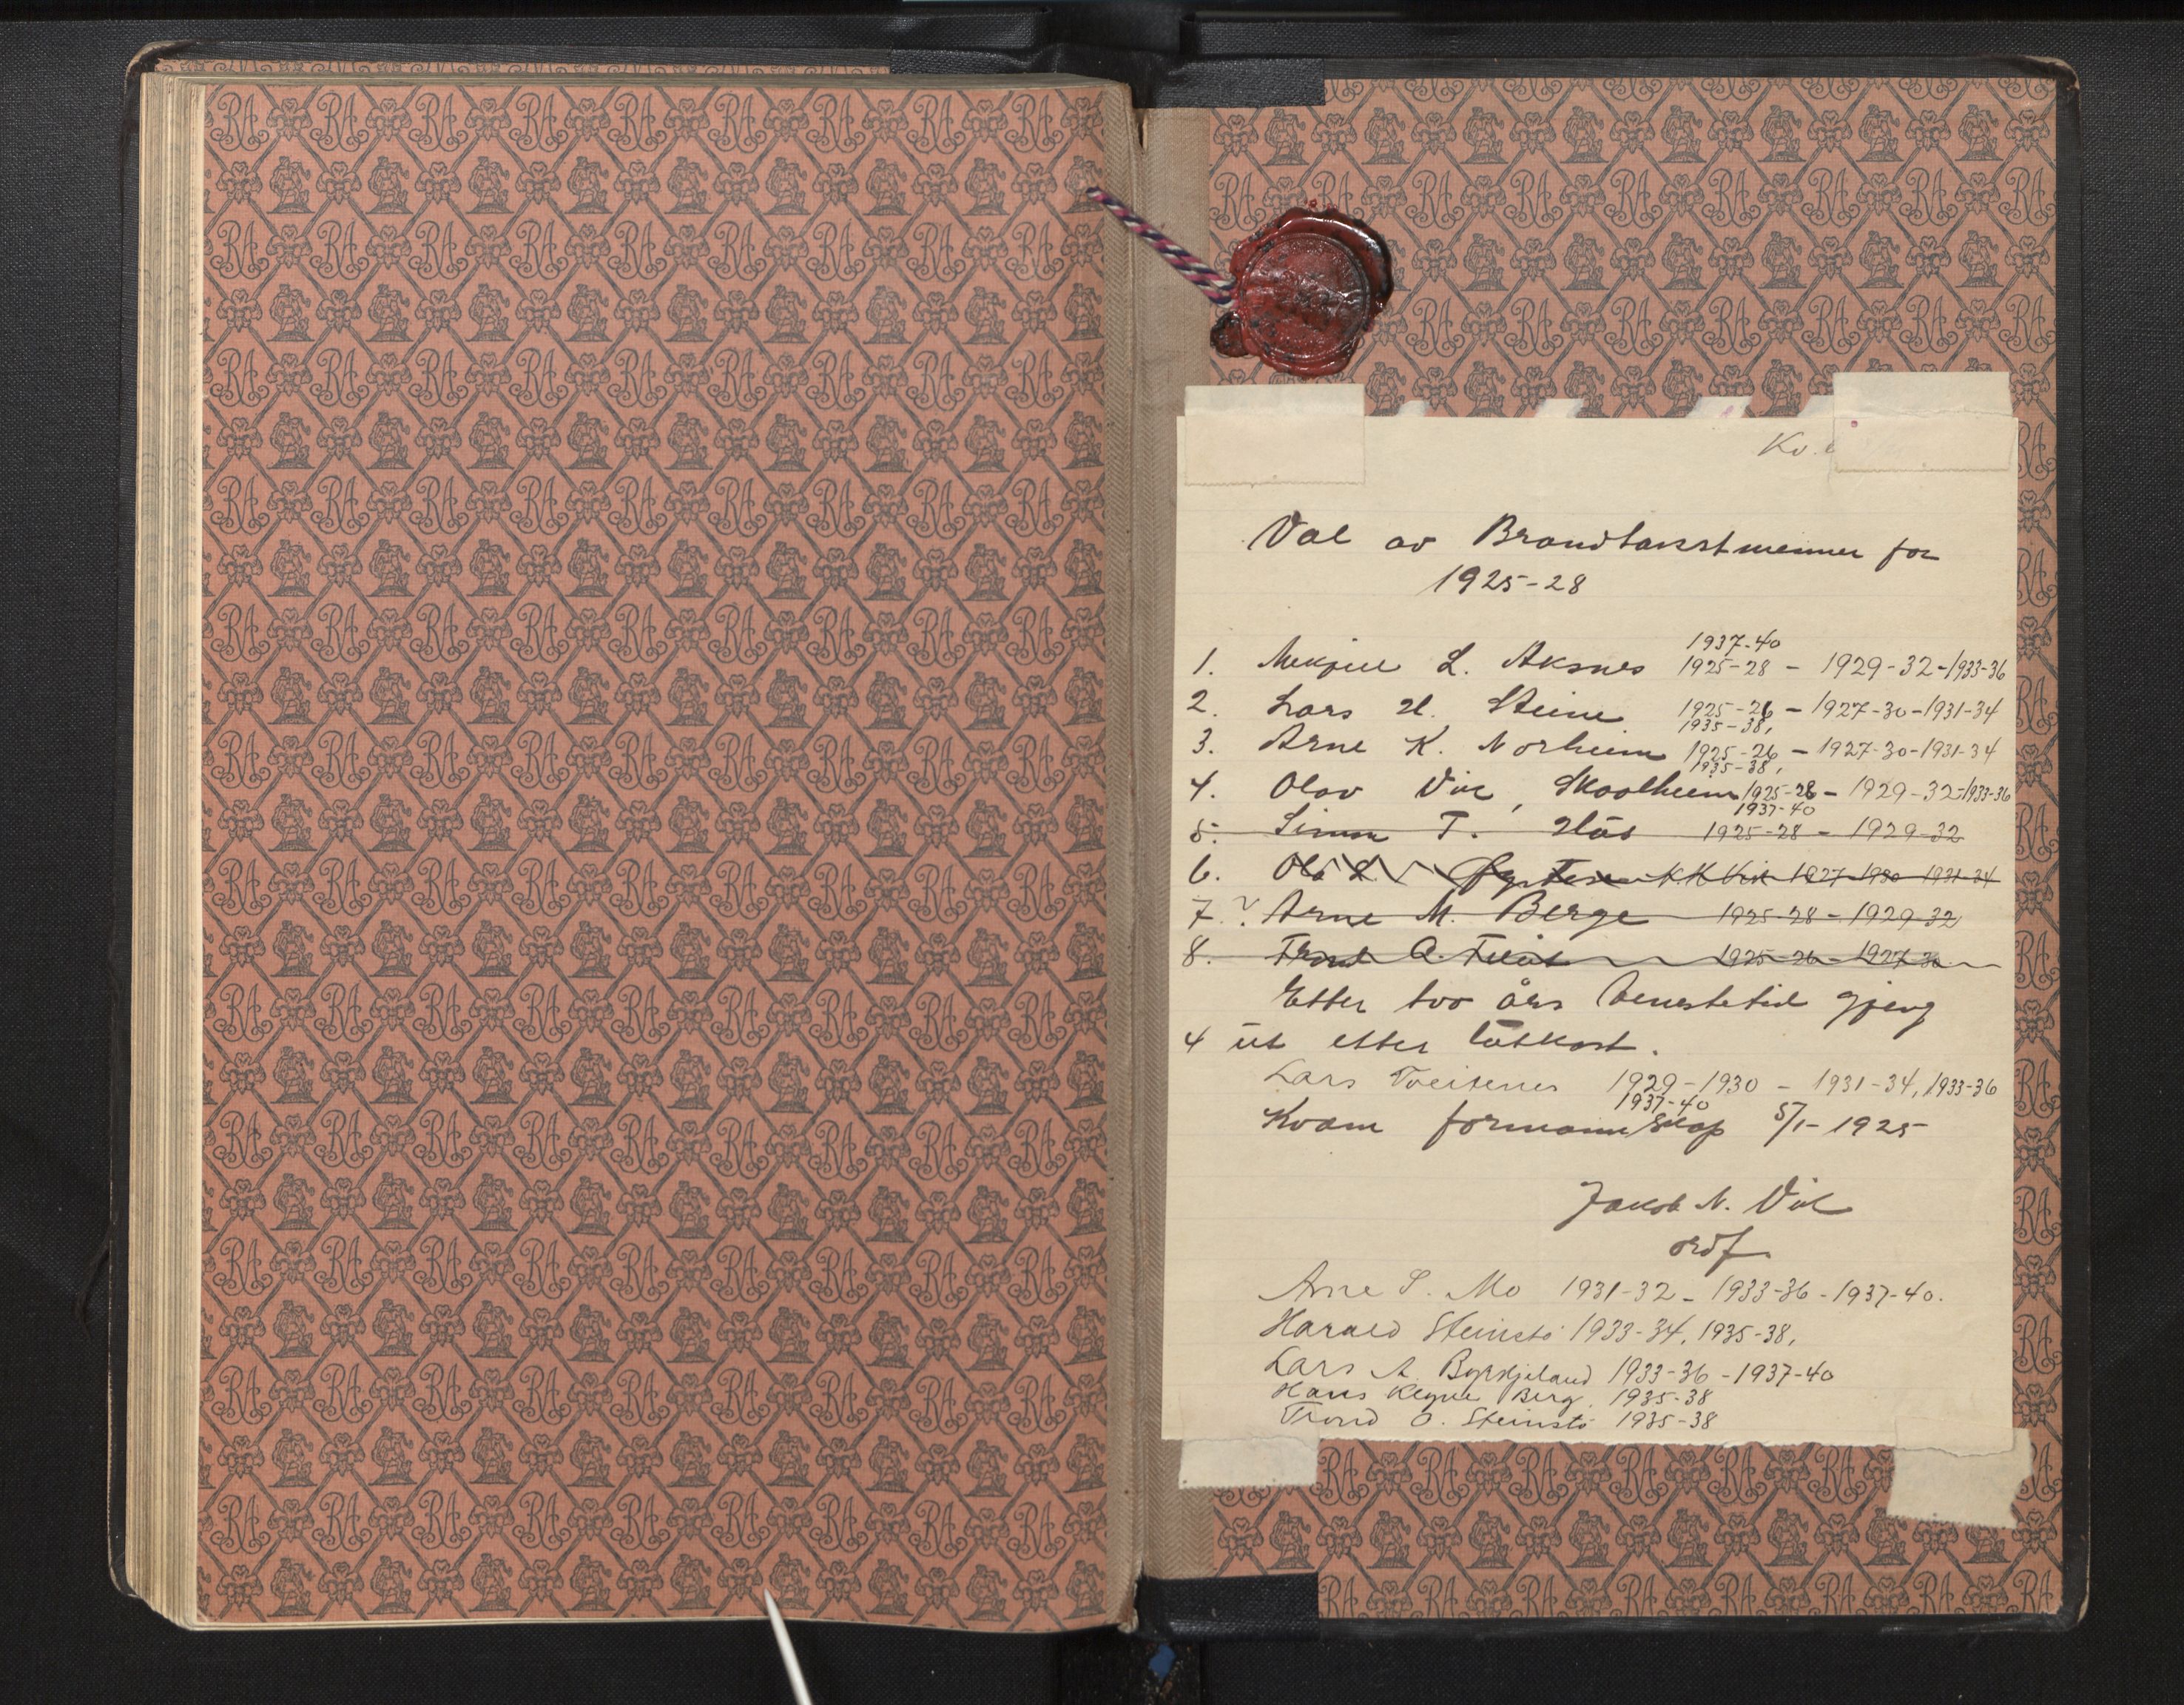 Kv.
Val av Brandtakstmenner for
1925-28
1937-40
1. Mikjell L. Aksnes 1925-28 - 1929-32-1933-36
2. Lars H. Steine 1925-26 - 1927-30-1931-34
1935-38,
3. Arne K. Norheim 1925-26 - 1927-30-1931-34
1935-38,
4. Olav Vik, Skaalheim 1925-28 - 1929-32-1933-36
1937-40
5. Simon T. Flås 1925-28 - 1929-32
6. Ola L. Øystese K.K. Vik 1927-1930 1931-34
7. Arne M. Berge 1925-28 - 1929-32
8. Trond A. 1925-26 - 1927-30
Etter tvo års tenestetid gjeng
4 ut etter lutkast.
Lars Tveitenes 1929-1930 - 1931-34, 1933-36
1937-40
Kvam formannskap 5/1-1925
Jakob N. Vik
ordf
Arne S. Mo 1931-32 - 1933-36 - 1937-40.
Harald Steinstö 1933-34, 1935-38,
Lars A. Byrkjeland 1933-36 - 1937-40
Hans Berg. 1935-38
Trond O. Steinstö 1935-38